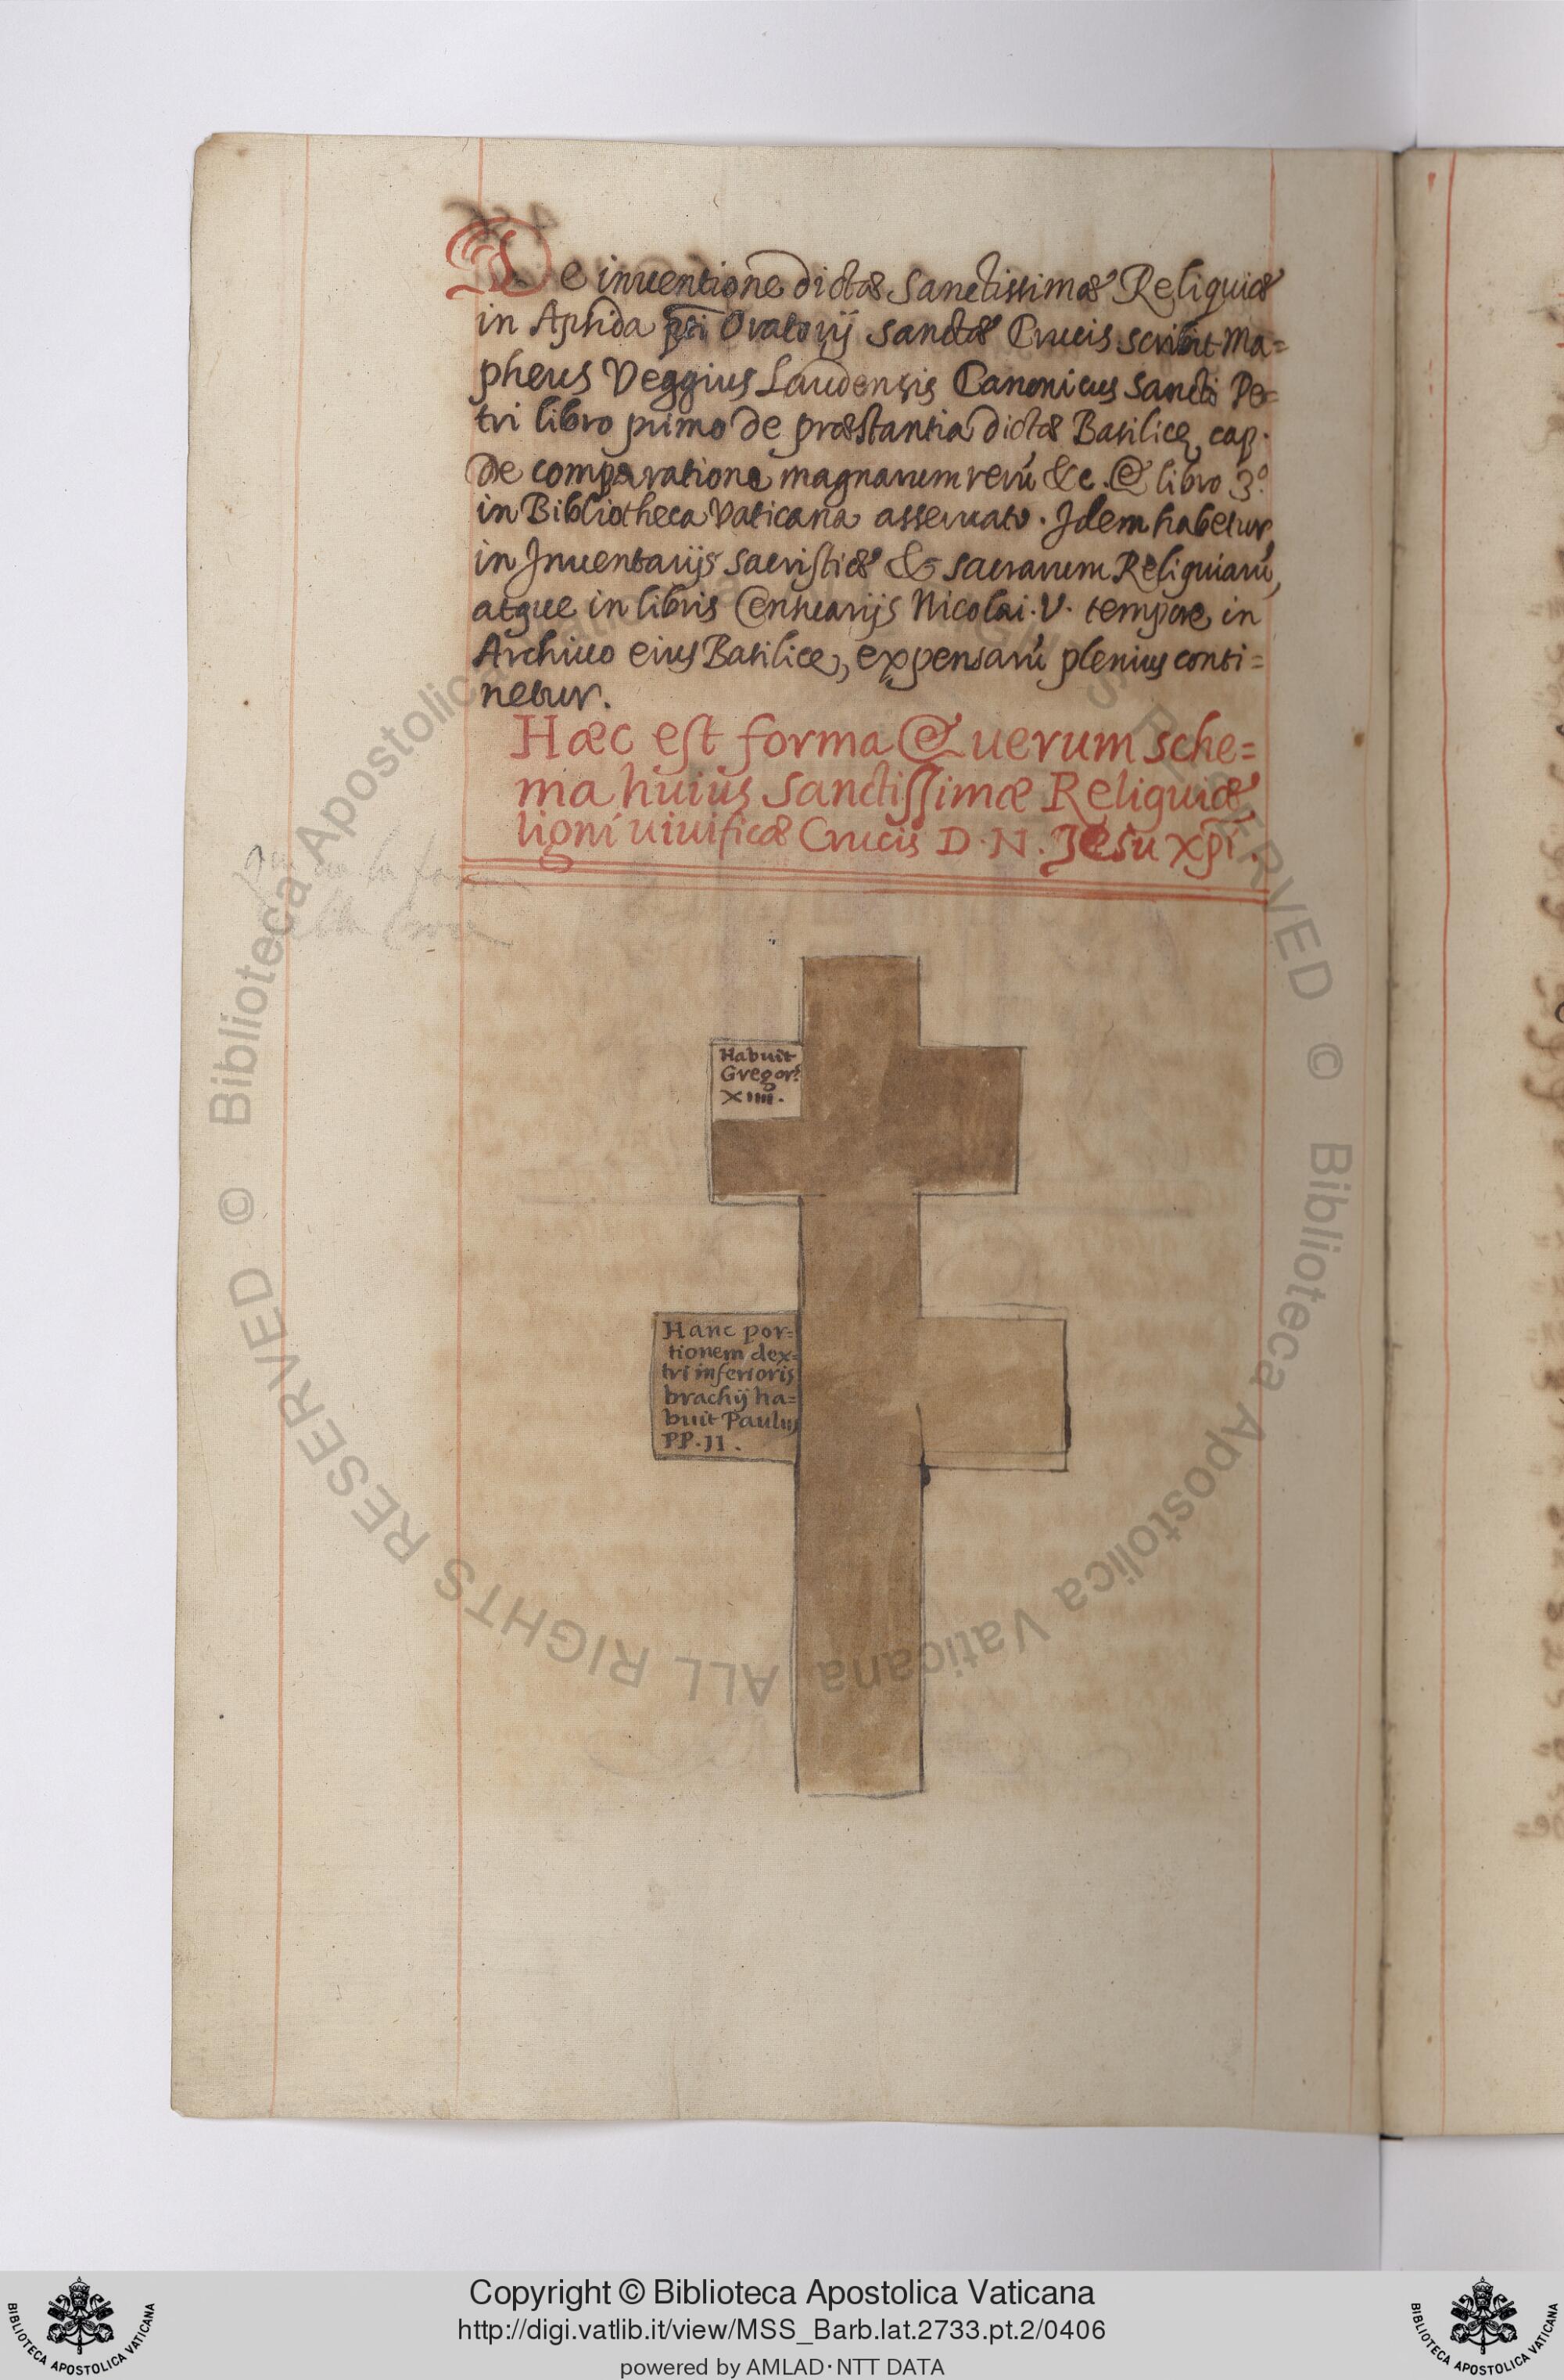 De inuentione dictæ Sanctissimæ Reliquiæ
in Apsida pñti Oratorij sanctæ Crucis scribit Ma=
pheus Veggius Laudensis Canonicus Sancti Pe=
tri libro primo de præstantia dictæ Basilicę cap.
de comparatione magnarum rerũ &c. & libro 3.º
in Bibliotheca Vaticana asseruato. Idem habetur
in Inuentarijs sacristiæ & sacrarum Reliquiarũ,
atque in libris Censuarijs Nicolai .V. tempore in
Archiuo eius Basilicę, expensarũ plenius conti=
netur.
Hæc est forma & uerum sche=
ma huius Sanctissimæ Reliquiæ
ligni uiuificæ Crucis D. N. Jesu xp̃i.
Habuit
Gregor.s
XIIII.
Hanc por=
tionem dex=
tri inferioris
brachij ha=
buit Paulus
PP. II.
Biblioteca Apostolica Vaticana ALL RIGHTS RESERVED ©
Biblioteca Apostolica Vaticana ALL RIGHTS RESERVED ©
Copyright © Biblioteca Apostolica Vaticana
http://digi.vatlib.it/view/MSS_Barb.lat.2733.pt.2/0406
powered by AMLAD·NTT DATA
BIBLIOTECA APOSTOLICA VATICANA
BIBLIOTECA APOSTOLICA VATICANA